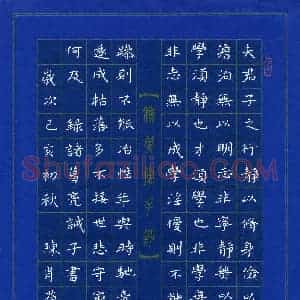 夫君子之行靜以脩身儉以
澹泊無以明志非寧靜無以
學須靜也才須學也非學
非志無以成學淫慢則不能
誡子
躁則不能冶性年與時馳意
遂成枯落多不接世悲守窮
何及 錄諸葛亮誡子書
歲次己亥初秋 陳肖
Shufaziliao.COM